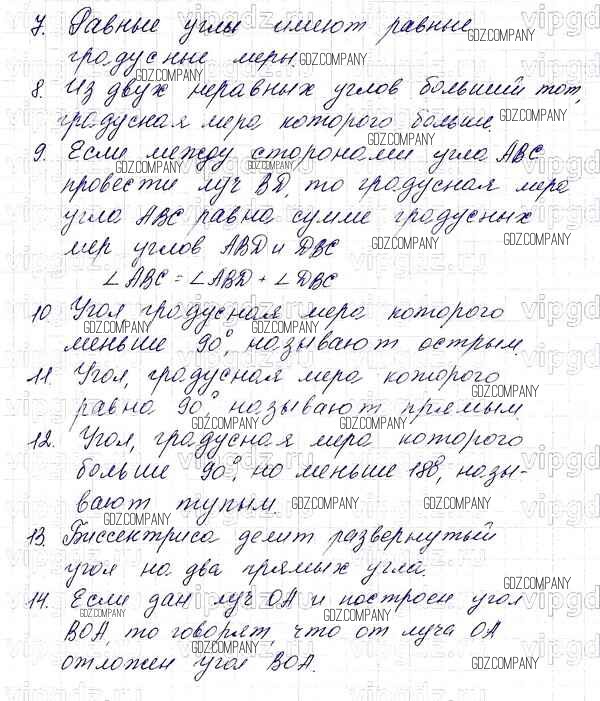 7. Равные углы имеют равные
градусные меры.
8. Из двух неравных углов больший тот,
градусная мера которого больше.
9. Если между сторонами угла ABC
провести луч BD, то градусная мера
угла ABC равна сумме градусных
мер углов ABD и DBC
∠ABC = ∠ABD + ∠DBC
10. Угол градусная мера которого
меньше 90°, называют острым.
11. Угол, градусная мера которого
равна 90°, называют прямым.
12. Угол, градусная мера которого
больше 90°, но меньше 180°, назы-
вают тупым.
13. Биссектриса делит развернутый
угол на два прямых угла.
14. Если дан луч OA и построен угол
BOA, то говорят, что от луча OA
отложен угол BOA.
GDZ.COMPANY